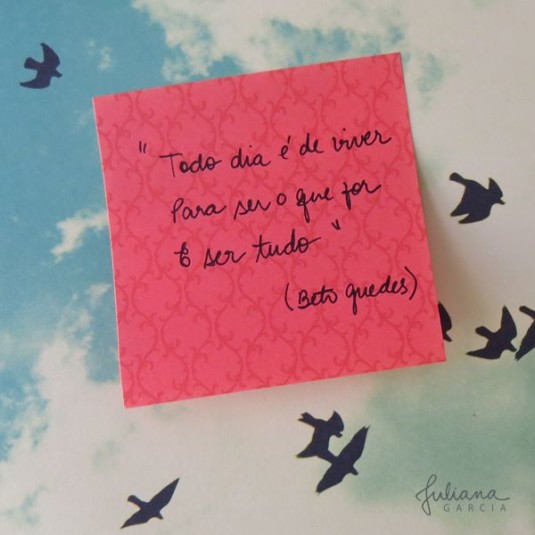 " Todo dia é de viver
Para ser o que for
E ser tudo "
(Beto guedes)
Juliana
GARCIA